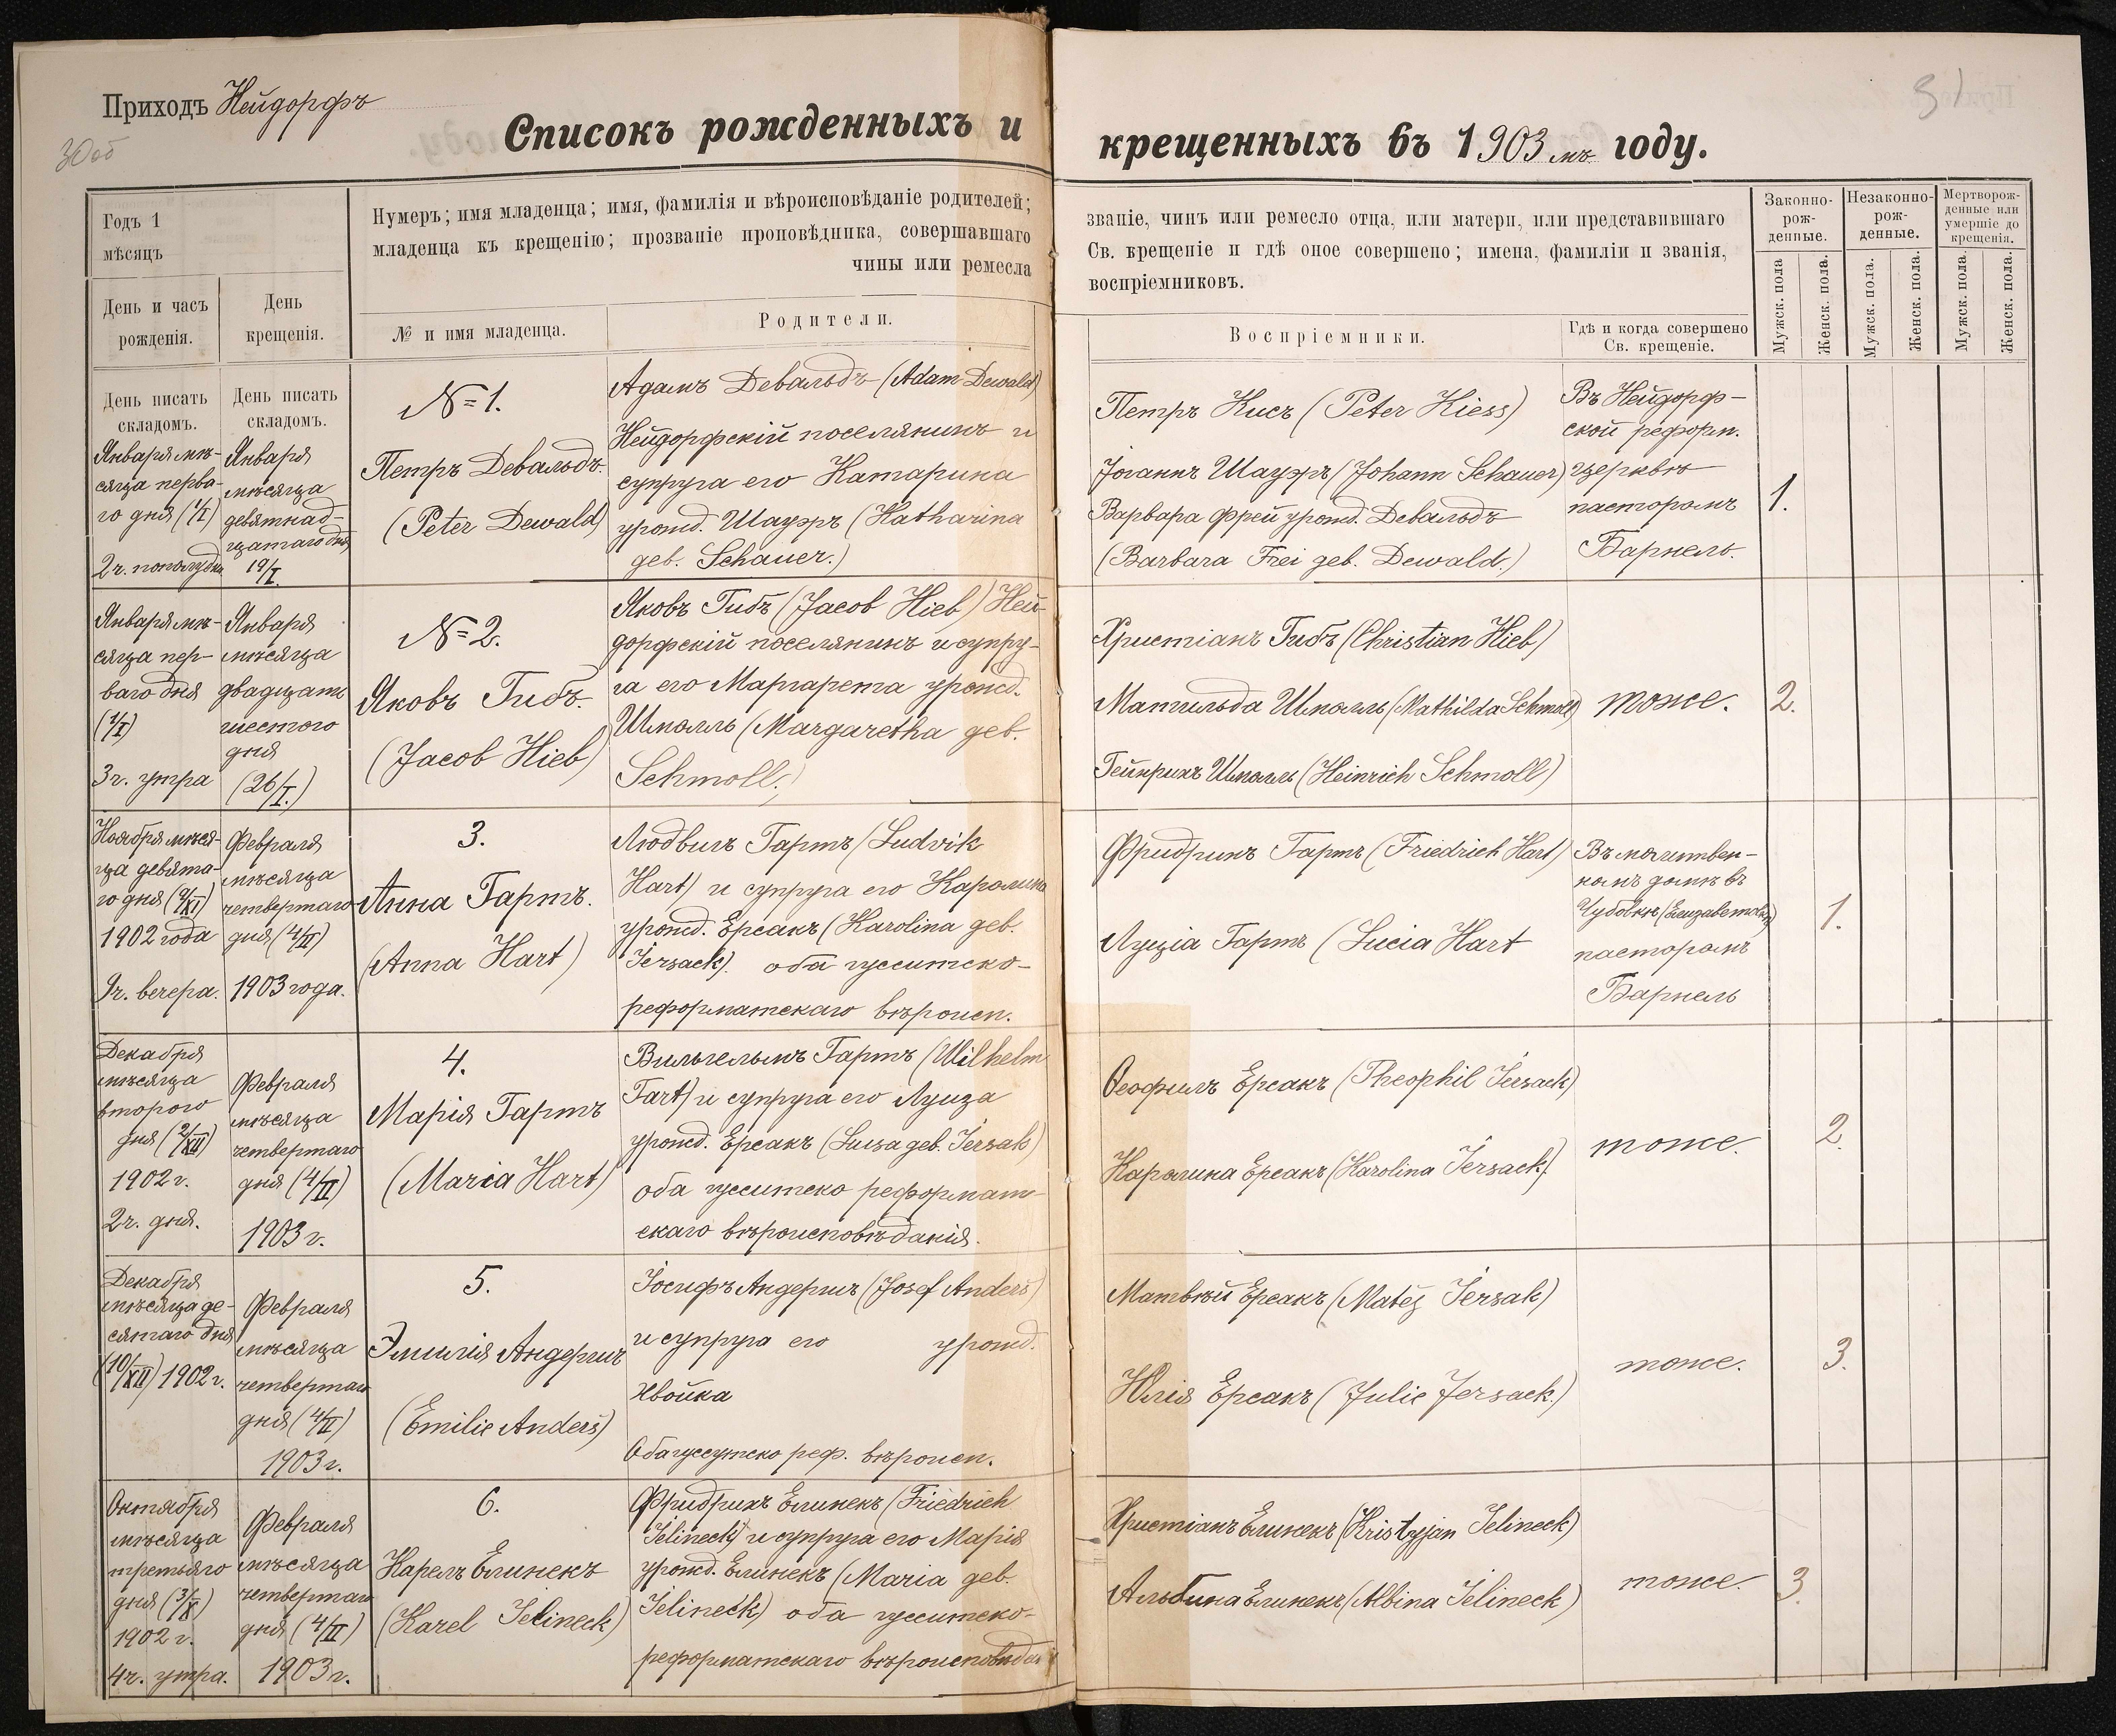 Приходъ Нейдорфъ
30 об
31
Списокъ рожденныхъ и крещенныхъ въ 1903 мъ году.
Годъ 1
мѣсяцъ
Нумеръ; имя младенца; имя, фамилія и вѣроисповѣданіе родителей;
младенца къ крещенію; прозваніе проповѣдника, совершавшаго
чины или ремесла
званіе, чинъ или ремесло отца, или матери, или представившаго
Св. крещеніе и гдѣ оное совершено; имена, фамиліи и званія,
воспріемниковъ.
Законно-
рож-
денные.
Незаконно-
рож-
денные.
Мертворож-
денные или
умершіе до
крещенія.
День и часъ
рожденія.
День
крещенія.
№ и имя младенца.
Родители.
Воспріемники.
Гдѣ и когда совершено
Св. крещеніе.
Мужск. пола
Женск. пола.
Мужск. пола.
Женск. пола.
Мужск. пола.
Женск. пола.
День писать
складомъ.
Января мѣ-
сяца перва-
го дня (1/I)
2 ч. пополудни
День писать
складомъ.
Января
мѣсяца
девятнад-
цатаго дня
19/I.
№ 1.
Петръ Девальдъ.
(Peter Dewald)
Адамъ Девальдъ (Adam Dewald)
Нейдорфскій поселянинъ и
супруга его Катарина
урожд. Шауэръ (Katharina
geb. Schauer.)
Петръ Кисъ (Peter Kiess)
Іоганнъ Шауэръ (Johann Schauer)
Варвара Фрей урожд. Девальдъ
(Barbara Frei geb. Dewald.)
Въ Нейдорф-
ской реформ.
церквѣ
пасторомъ
Барнель.
1.
Января мѣ-
сяца пер-
ваго дня
(1/I)
3 ч. утра
Января
мѣсяца
двадцать
шестого
дня
(26/I.)
№ 2.
Яковъ Гибъ.
(Jacob Hieb)
Яковъ Гибъ (Jacob Hieb) Ней-
дорфскій поселянинъ и супру-
га его Маргарета урожд.
Шмолль (Margaretha geb.
Schmoll.)
Христіанъ Гибъ (Christian Hieb)
Матильда Шмолль (Mathilda Schmoll)
Гейнрихъ Шмолль (Heinrich Schmoll)
тоже.
2.
Ноября мѣся-
ца девята-
го дня (9/XI)
1902 года
9 ч. вечера.
Февраля
мѣсяца
четвертаго
дня (4/II)
1903 года.
3.
Анна Гартъ.
(Anna Hart)
Людвигъ Гартъ (Ludvik
Hart) и супруга его Каролина
урожд. Ерсакъ (Karolina geb.
Jersack). оба гуситско-
реформатскаго вѣроисп.
Фридрихъ Гартъ (Friedrich Hart)
Луціа Гартъ (Lucia Hart
Въ молитвен-
номъ домѣ въ
Чубовкѣ
пасторомъ
Барнель
1.
Декабря
мѣсяца
второго
дня (2/XII)
1902 г.
2 ч. дня.
Февраля
мѣсяца
четвертаго
дня (4/II)
1903 г.
4.
Марія Гартъ
(Maria Hart)
Вильгельмъ Гартъ (Wilhelm
Gart) и супруга его Луиза
урожд. Ерсакъ (Luisa geb. Jersak)
оба гуситско реформат-
скаго вѣроисповѣданія.
Ѳеофилъ Ерсакъ (Theophil Jersack)
Каролина Ерсакъ (Karolina Jersack).
тоже.
2.
Декабря
мѣсяца де-
сятаго дня
(10/XII) 1902 г.
Февраля
мѣсяца
четвертаго
дня (4/II)
1903 г.
5.
Эмилія Андершъ
(Emilie Anderš)
Іосифъ Андершъ (Josef Anderš)
и супруга его урожд.
Хвойка
Оба гуситско реф. вѣроисп.
Матвѣй Ерсакъ (Matěj Jersak)
Юлія Ерсакъ (Julie Jersack.)
тоже.
3.
Октября
мѣсяца
третьяго
дня (3/X)
1902 г.
4 ч. утра.
Февраля
мѣсяца
четвертаго
дня (4/II)
1903 г.
6.
Карелъ Елинекъ
(Karel Jelineck)
Фридрихъ Елинекъ (Friedrich
Jelineck) и супруга его Марія
урожд. Елинекъ (Maria geb.
Jelineck) оба гуситско-
реформатскаго
Христіанъ Елинекъ (Kristyjan Jelineck)
Альбина Елинекъ (Albina Jelineck)
тоже.
3.